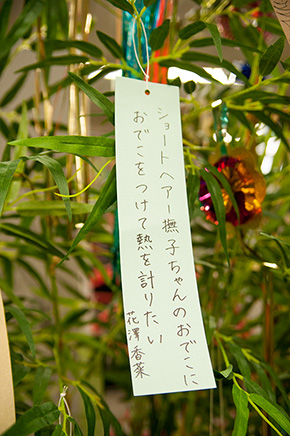 ショートヘアー撫子ちゃんのおでこに
おでこをつけて熱を計りたい
花澤香菜